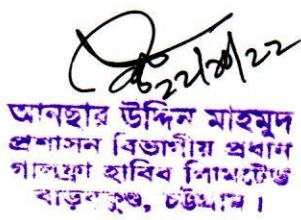 ২২/১০/২২
আনছার উদ্দিন মাহমুদ
প্রশাসন বিভাগীয় প্রধান
গালফ্রা হাবিব লিমিটেড
বাড়বকুণ্ড, চট্টগ্রাম।